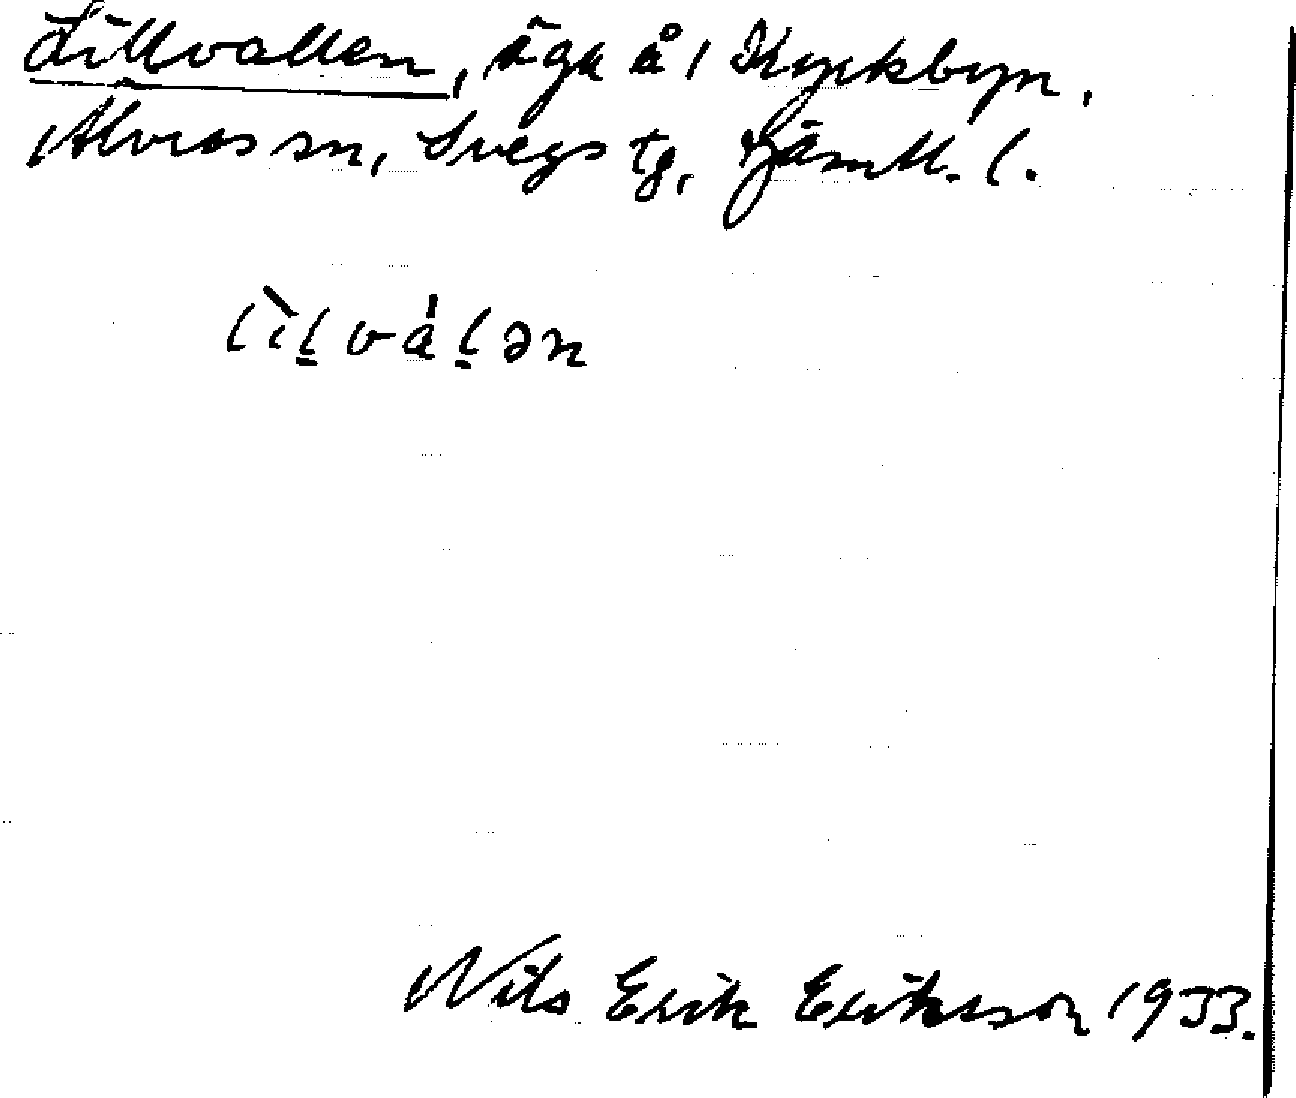 Lillvallen, äga å 1 Kyrkbyn,
Älvros sn, Svegs tg, Jämtl. l.
lìl̠vál̠ən
Nils Erik Eriksson 1933.